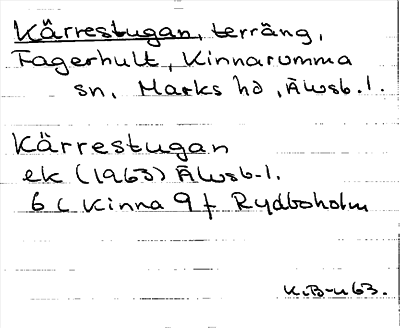 Kärrestugan, terräng,
Fagerhult, Kinnarumma
sn, Marks hd, Älvsb. l.
Kärrestugan
ek (1963) Älvsb. l.
6 c Kinna 9 f Rydboholm
K.B-n 63.